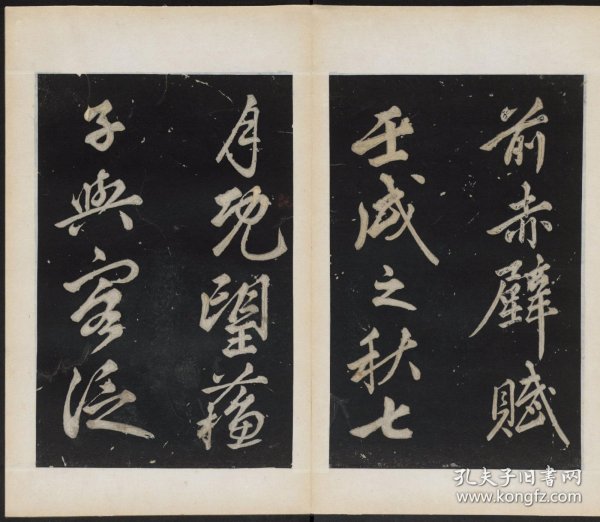 前赤壁賦
壬戌之秋七
月既望蘇
子與客泛
孔夫子旧书网
www.kongfz.com